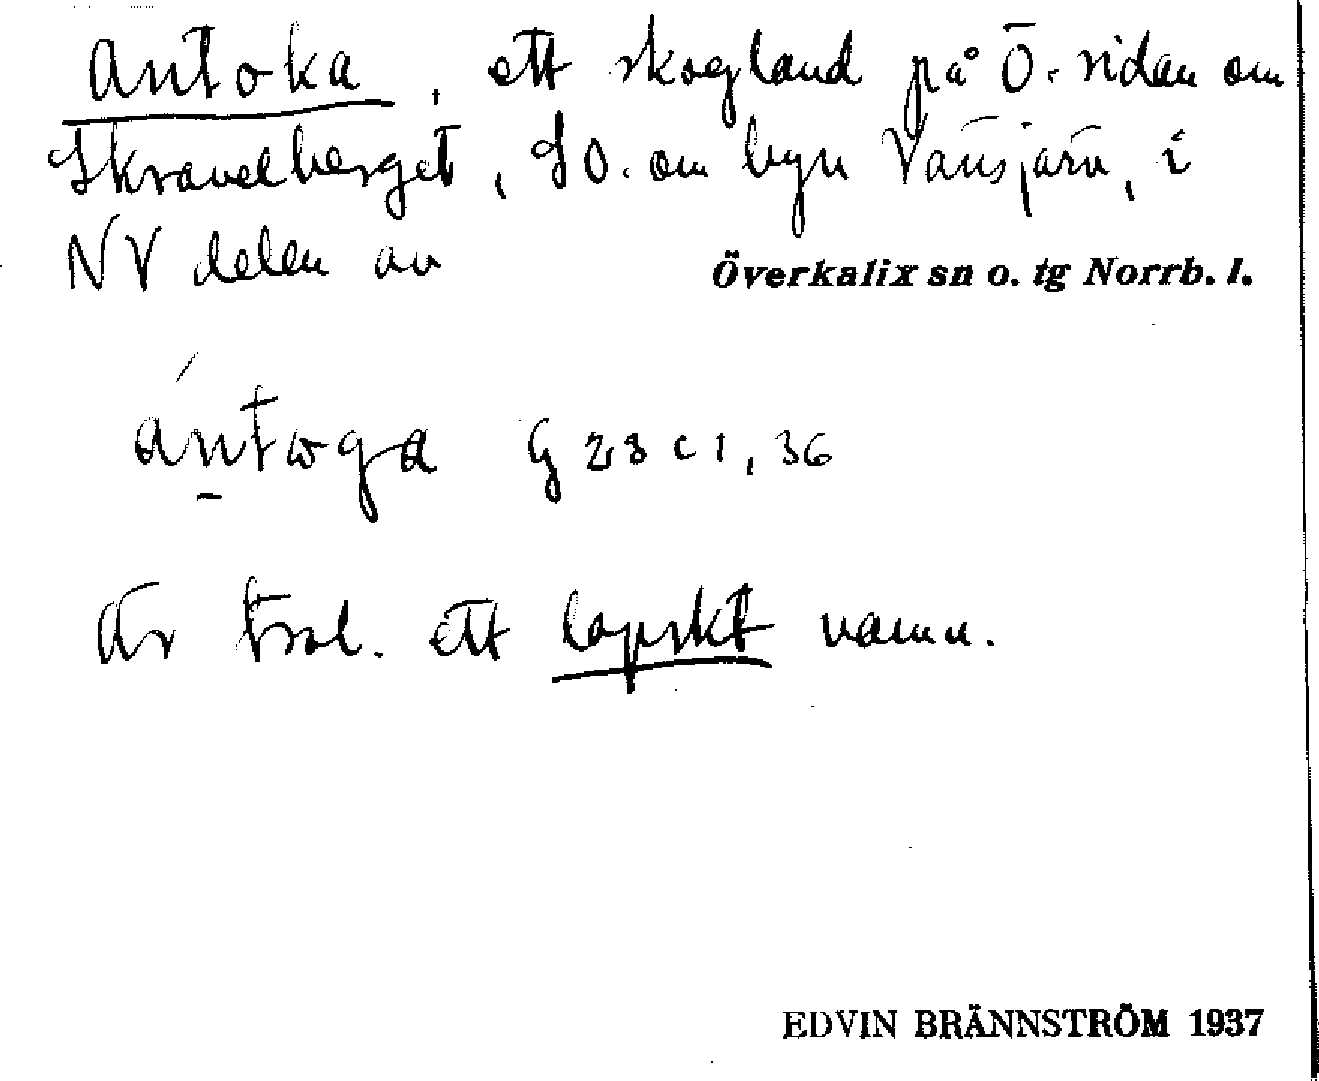 Antoka, ett skogland på Ö. sidan om
Skravelberget, SO. om byn Vänsjärv, i
NV delen av Överkalix sn o. tg Norrb. l.
ántωga G 23 c 1, 36
Är trol. ett lapskt namn.
EDVIN BRÄNNSTRÖM 1937